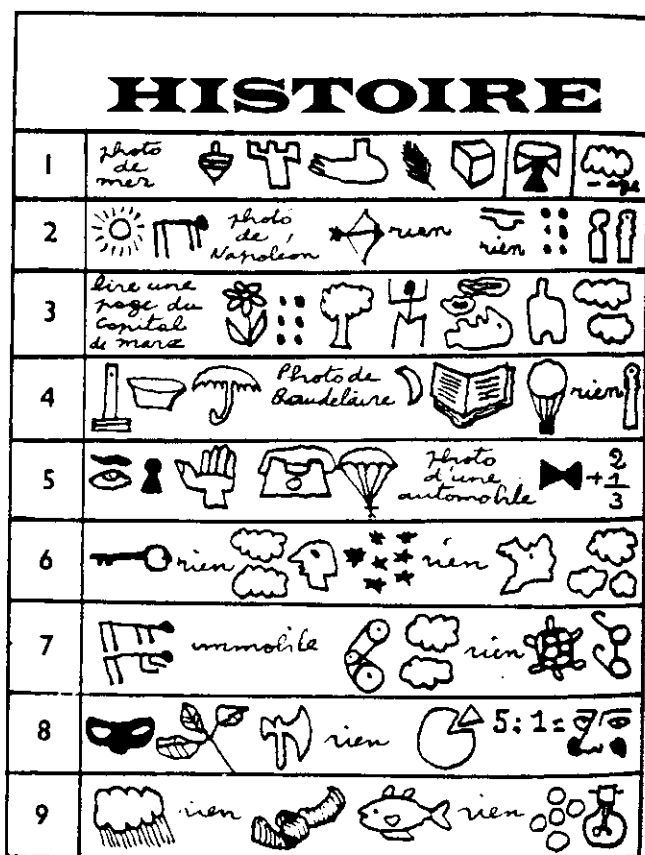 HISTOIRE
1
photo
de
mer
- age
2
photo
de
Napoléon
rien
rien
3
lire une
page du
Capital
de marx
4
Photo de
Baudelaire
rien
5
photo
d'une
automobile
+
2
1
3
6
rien
rien
7
immobile
rien
8
rien
5:1=
9
rien
rien